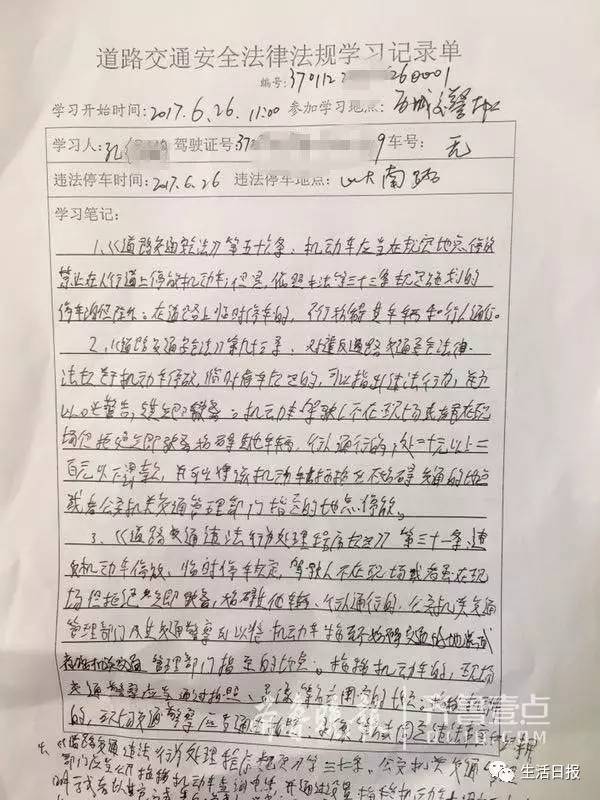 道路交通安全法律法规学习记录单
编号: 370112 260001
学习开始时间: 2017.6.26. 11:00 参加学习地点: 历城交警大队
学习人: 孔 驾驶证号 37 9 车号: 无
违法停车时间: 2017.6.26 违法停车地点: 山大南路
学习笔记:
1、《道路交通安全法》第五十六条、机动车应当在规定地点停放
禁止在人行道上停放机动车；但是，依照本法第三十三条规定施划的
停车泊位除外。在道路上临时停车的，不得妨碍其它车辆和行人通行。
2、《道路交通安全法》第九十三条、对违反道路交通安全法律、
法规关于机动车停放、临时停车规定的，可以指出违法行为，并予
以口头警告，
机动车驾驶人不在现场或者虽在现
场但拒绝立即驶离，妨碍其它车辆、行人通行的，处二十元以上二
百元以下罚款，并可以将该机动车拖移至不妨碍交通的地点
或者公安机关交通管理部门指定的地点停放。
3、《道路交通违法行为处理程序规定》第三十一条、违
反机动车停放、临时停车规定，驾驶人不在现场或者虽在现
场但拒绝立即驶离，妨碍其他车辆、行人通行的，公安机关交通
管理部门及其交通警察可以将机动车拖至不妨碍交通的地点或
管理部门指定的地点。拖移机动车的，现场
交通警察应当通过拍照、
的，现场交通警察应当通过
4、《道路交通违法行为处理程序规定》第三十 条、公安机关交通
部门应当公开拖移机动车查询电话，并通过设置拖移机动车
齐鲁晚报 齐鲁壹点
生活日报